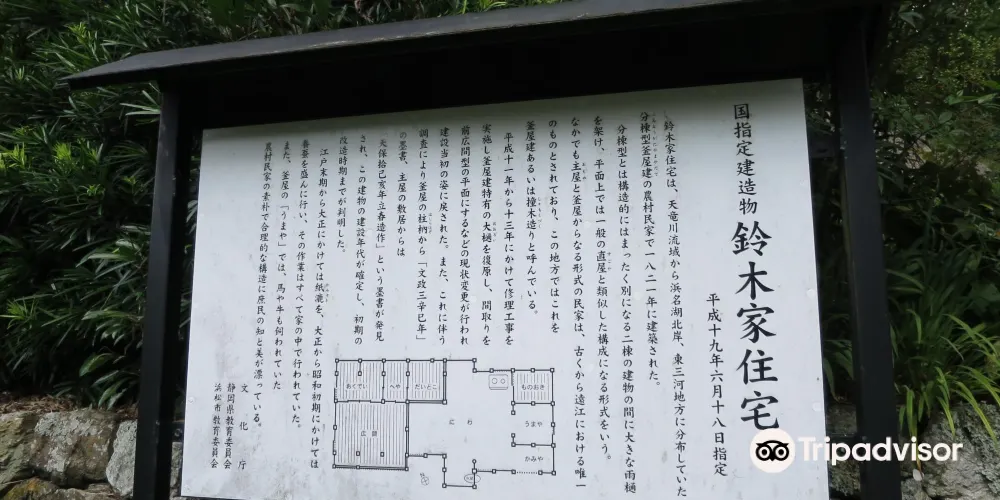 国指定建造物 鈴木家住宅
平成十九年六月十八日指定
鈴木家住宅は、天竜川流域から浜名湖北岸、東三河地方に分布していた
分棟型釜屋建の農村民家で一八二一年に建築された。
分棟型とは構造的にはまったく別になる二棟の建物の間に大きな雨樋
を架け、平面上では一般の直屋と類似した構成になる形式をいう。
なかでも主屋と釜屋からなる形式の民家は、古くから遠江における唯一
のものとされており、この地方ではこれを
釜屋建あるいは撞木造りと呼んでいる。
平成十一年から十三年にかけて修理工事を
実施し釜屋建特有の大樋を復原し、間取りを
前広間型の平面にするなどの現状変更が行われ
建設当初の姿に戻された。また、これに伴う
調査により釜屋の柱枘から「文政三辛巳年」
の墨書、主屋の敷居からは
「天保拾己亥年立春造作」という墨書が発見
され、この建物の建設年代が確定し、初期の
改造時期までが判明した。
江戸末期から大正にかけては紙漉を、大正から昭和初期にかけては
養蚕を盛んに行い、その作業はすべて家の中で行われていた。
また、釜屋の「うまや」では、馬や牛も飼われていた
農村民家の素朴で合理的な構造に庶民の知と美が漂っている。
文化庁
静岡県教育委員会
浜松市教育委員会
おくでい
へや
だいどこ
ものおき
広間
にわ
うまや
かみや
Tripadvisor